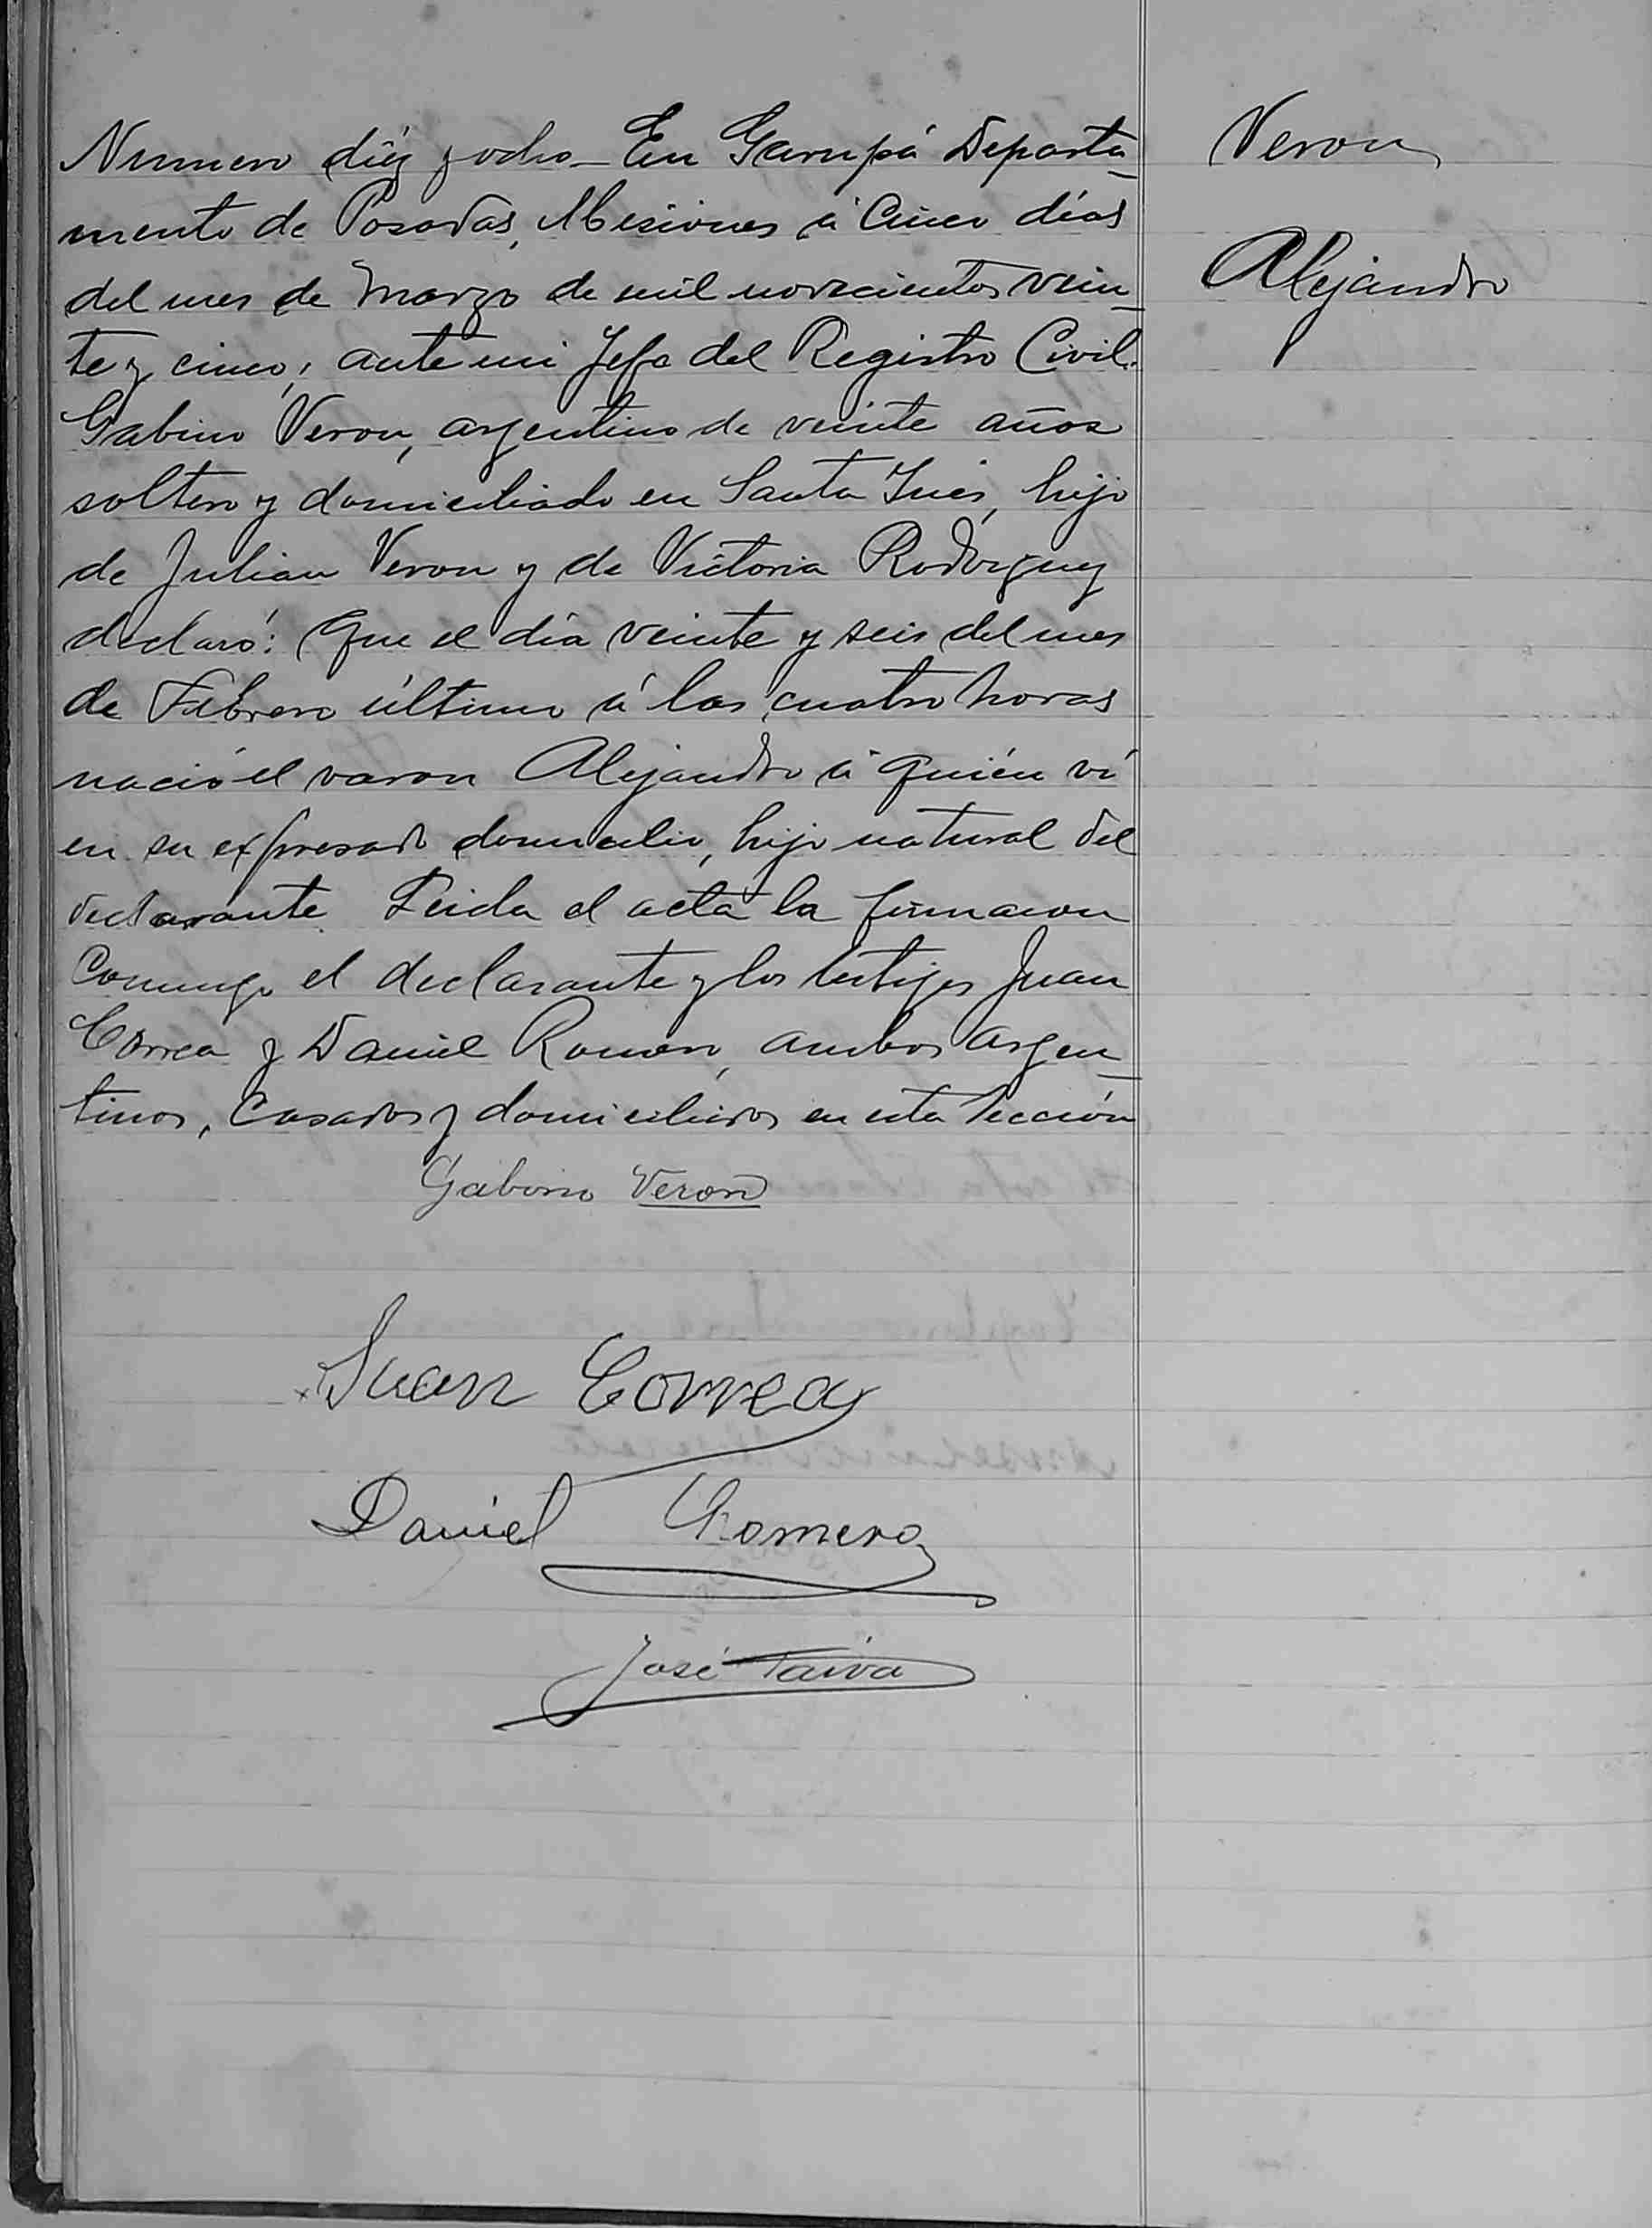 Veron
Alejandro
Numero diéz y ocho — En Garupá Departa-
mento de Posadas, Misiones á Cinco días
del mes de Marzo de mil novecientos vein-
te y cinco; ante mi Jefe del Registro Civil.
Gabino Veron, argentino de veinte años
soltero y domiciliado en Santa Inés, hijo
de Julian Veron y de Victoria Rodriguez
declaró: Que el día veinte y seis del mes
de Febrero último á las cuatro horas
nació el varon Alejandro á quién ví
en su expresado domicilio, hijo natural del
declarante. Leida el acta la firmaron
Conmigo el declarante y los testigos Juan
Correa y Daniel Romero, ambos argen-
tinos, Casados y domiciliados en esta Sección
Gabino Veron
Juan Correa
Daniel Romero
José Paiva